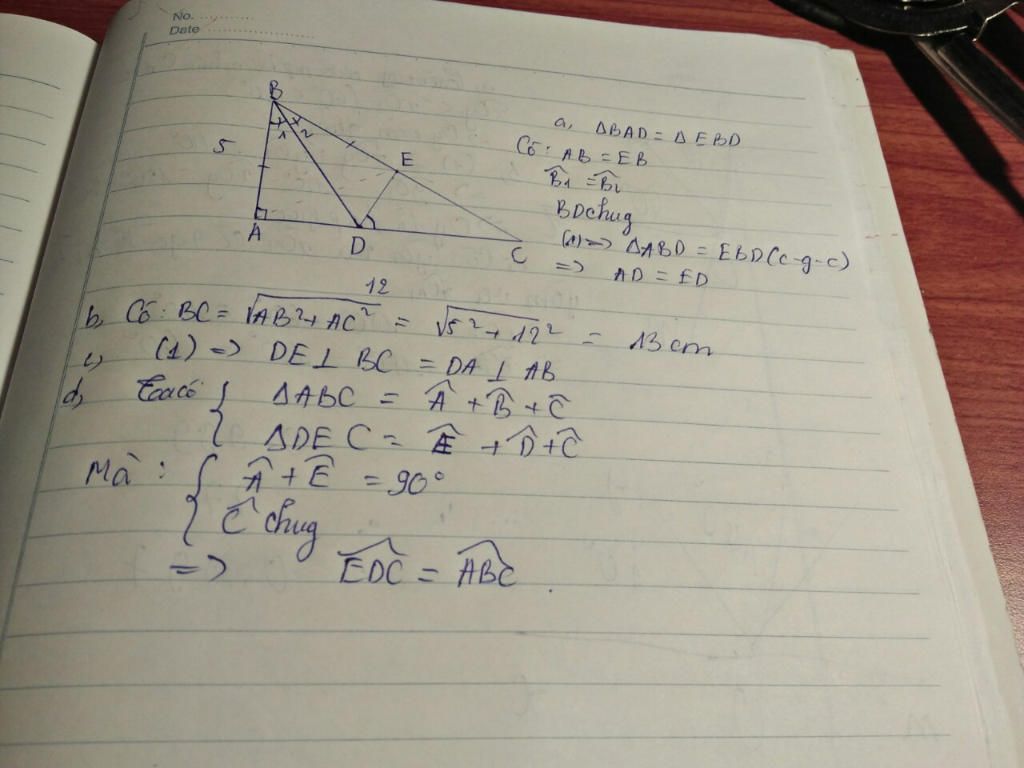 No. ..............
Date ......................
B
1 2
5
E
A
D
C
12
a, ΔBAD = ΔEBD
Có: AB = EB
B̂1 = B̂2
BD chug
(1) => ΔABD = EBD (c-g-c)
=> AD = ED
b, Có: BC = √AB²+AC² = √5²+12² = 13 cm
c, (1) => DE ⊥ BC = DA ⊥ AB
d, Ta có { ΔABC = Â + B̂ + Ĉ
ΔDEC = Ê + D̂ + Ĉ
Mà : { Â + Ê = 90°
Ĉ chug
=> EDC = ABC